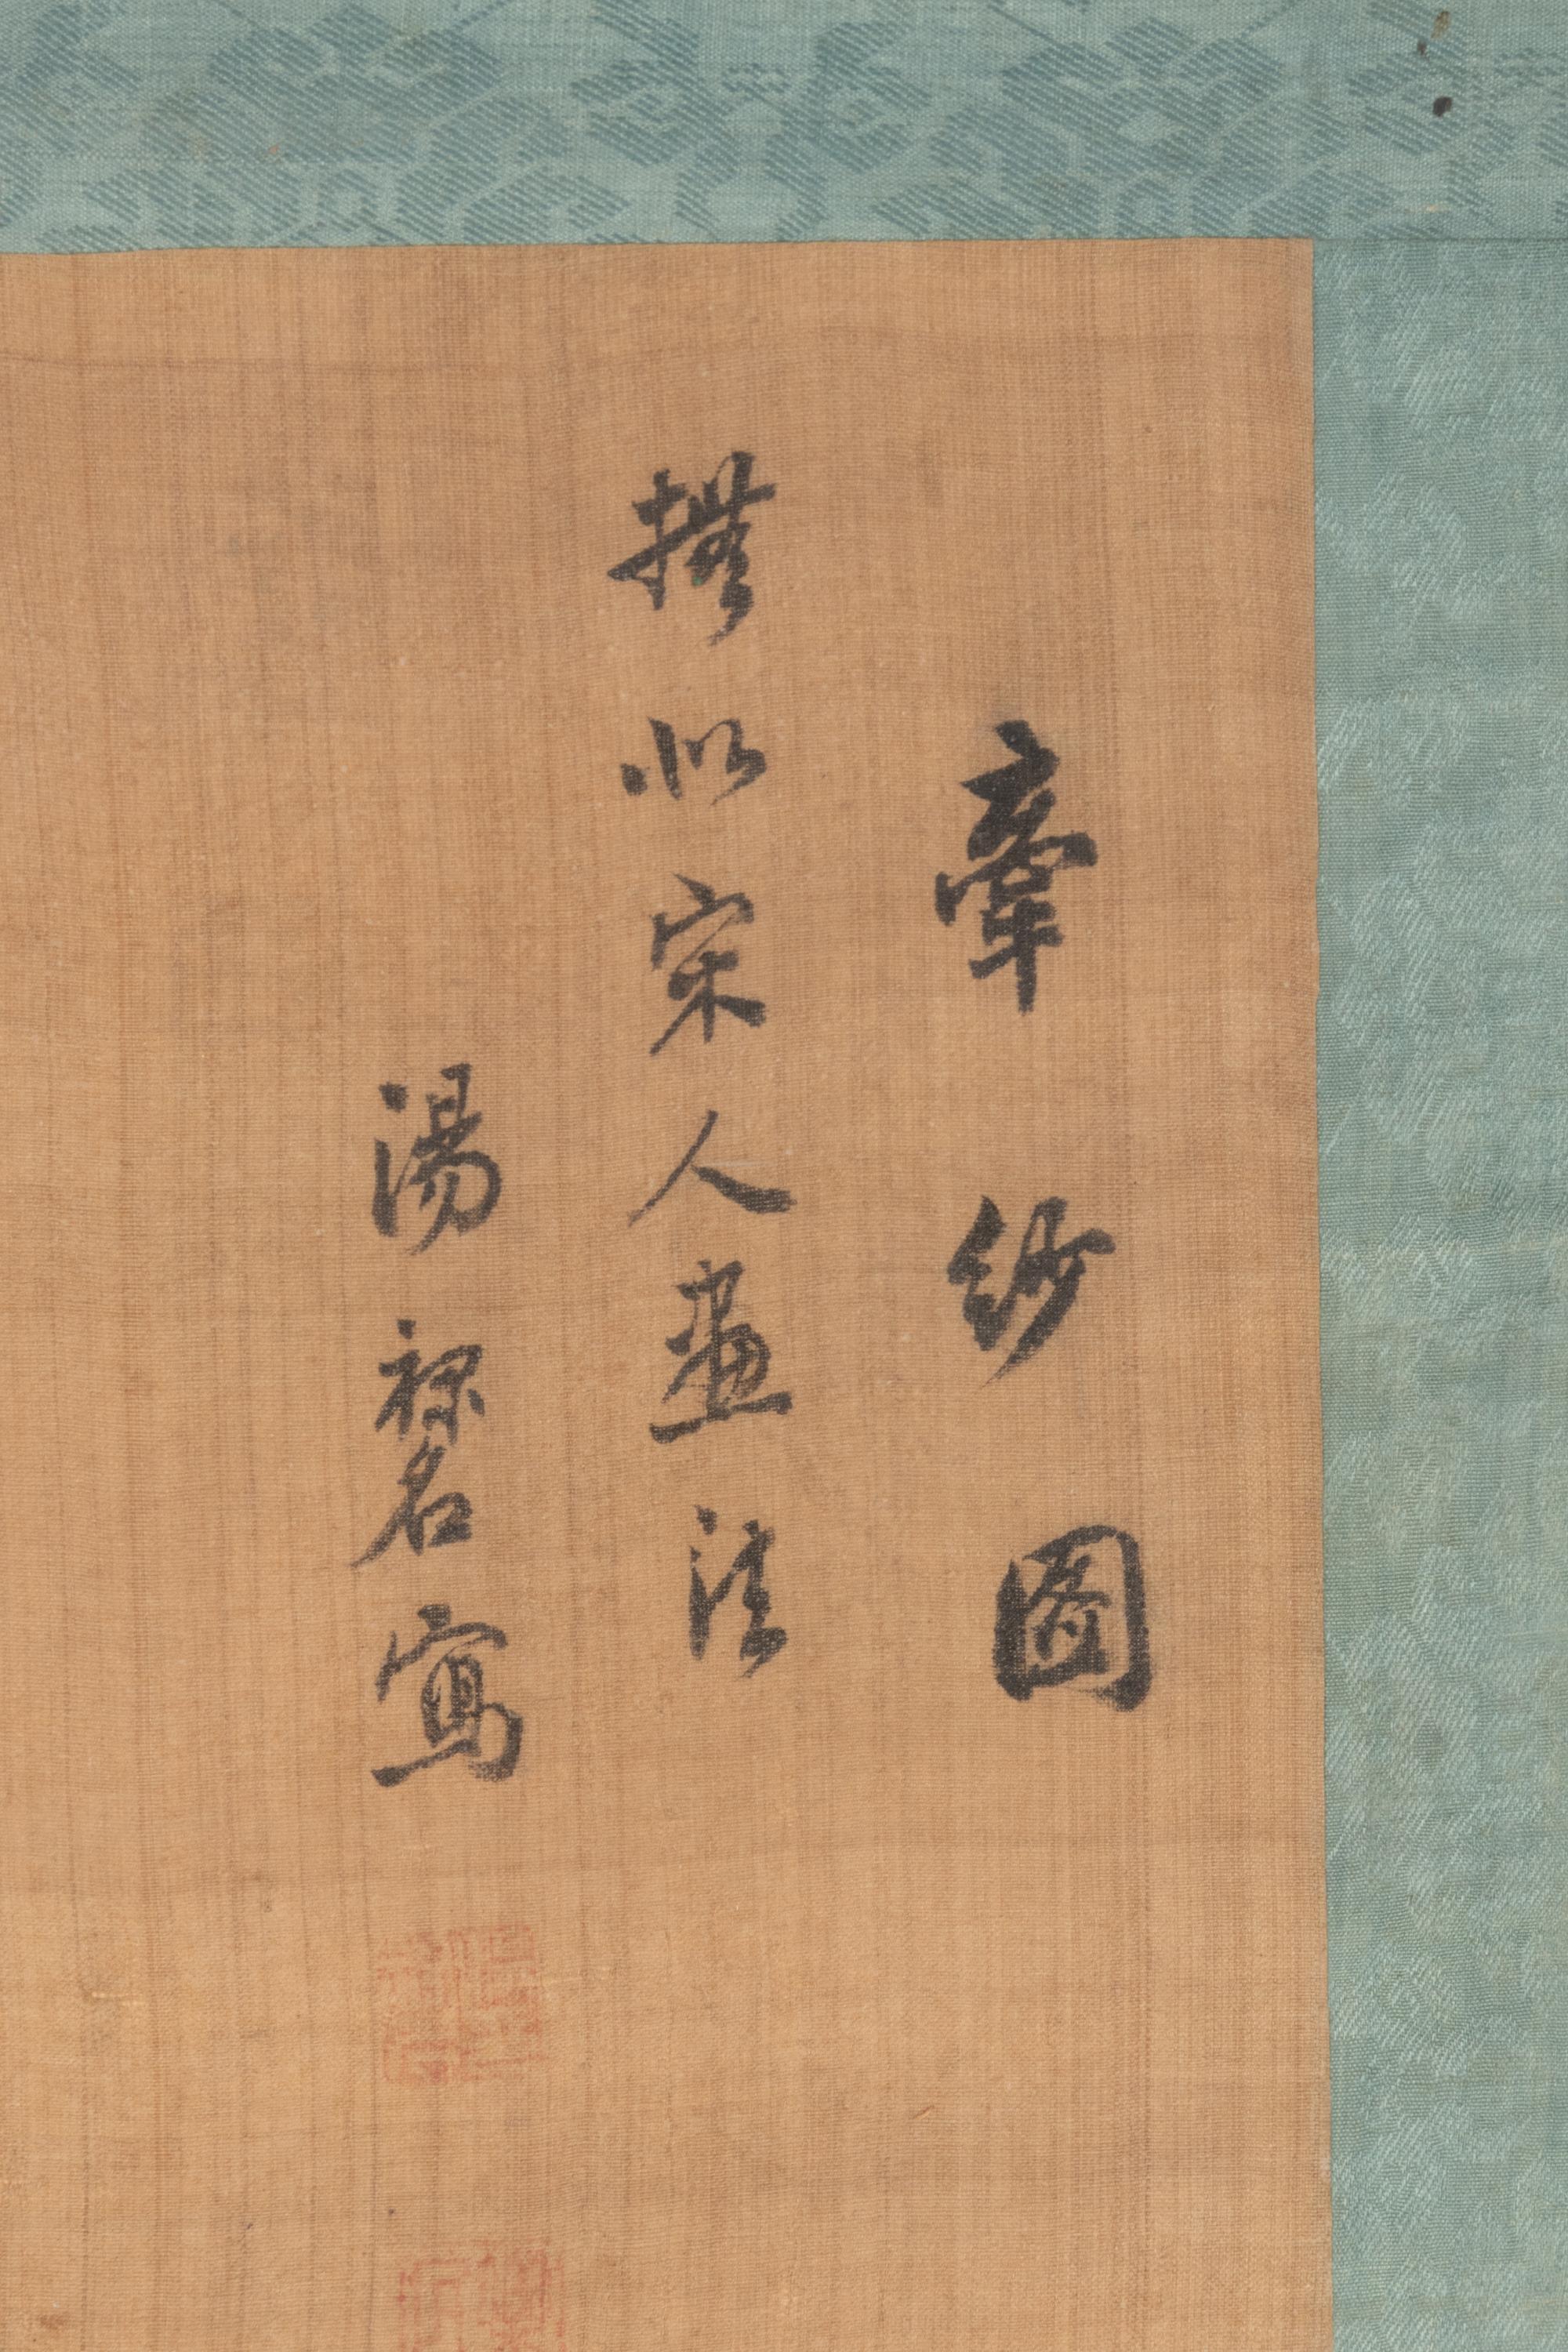 牽紗圖
撫似宋人畫法
湯祿名寫